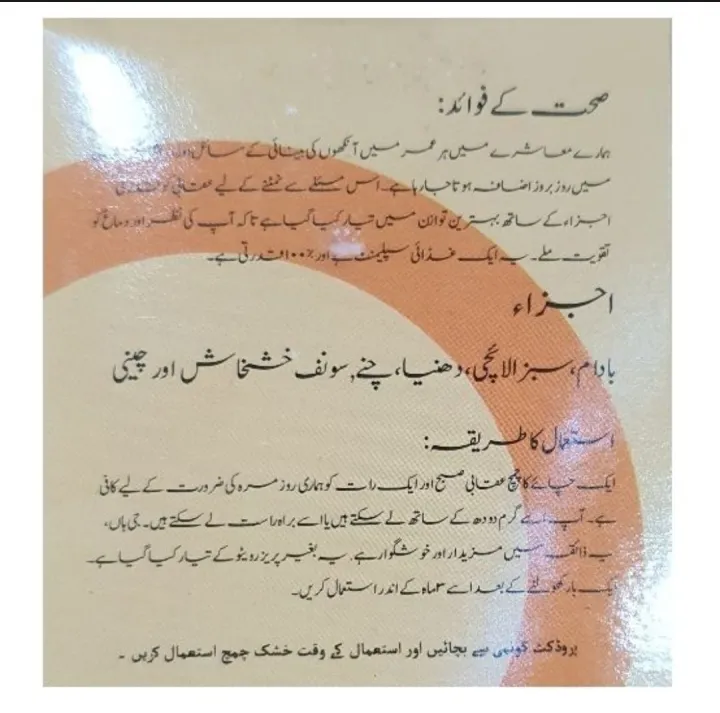 صحت کے فوائد:
ہمارے معاشرے میں ہر عمر میں آنکھوں کی بینائی کے مسائل اور
میں روز بروز اضافہ ہوتا جا رہا ہے۔ اس مسئلے سے نمٹنے کے لیے عقابی کو قدرتی
اجزاء کے ساتھ بہترین توازن میں تیار کیا گیا ہے تاکہ آپ کی نظر اور دماغ کو
تقویت ملے۔ یہ ایک غذائی سپلیمنٹ ہے اور ۱۰۰٪ قدرتی ہے۔
اجزاء
بادام، سبز الائچی، دھنیا، چنے, سونف خشخاش اور چینی
استعمال کا طریقہ:
ایک چائے کا چمچ عقابی صبح اور ایک رات کو ہماری روزمرہ کی ضرورت کے لیے کافی
ہے۔ آپ اسے گرم دودھ کے ساتھ لے سکتے ہیں یا اسے براہ راست لے سکتے ہیں۔ جی ہاں،
یہ ذائقہ میں مزیدار اور خوشگوار ہے۔ یہ بغیر پریزرویٹو کے تیار کیا گیا ہے۔
ایک بار کھولنے کے بعد اسے ۳ ماہ کے اندر استعمال کریں۔
پروڈکٹ کو نمی سے بچائیں اور استعمال کے وقت خشک چمچ استعمال کریں ۔